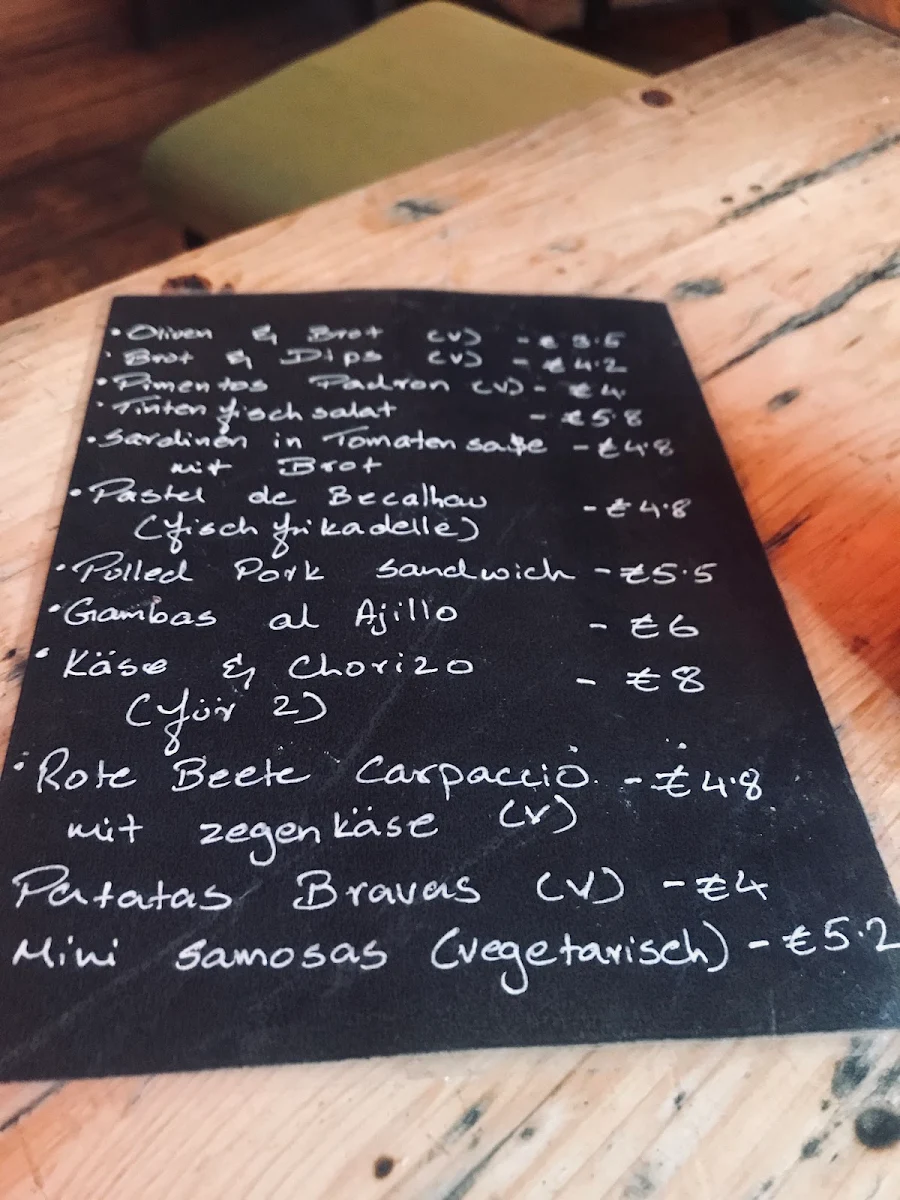 • Oliven & Brot (v) - € 3.5
• Brot & Dips (v) - € 4.2
• Pimentos Padron (v) - €4.
• Tintenfisch salat - €5.8
• Sardinen in Tomaten soße - €4.8
mit Brot
• Pastel de Bacalhau - €4.8
(fisch frikadelle)
• Pulled Pork Sandwich - €5.5
• Gambas al Ajillo - €6
• Käse & Chorizo - €8
(für 2)
• Rote Beete Carpaccio - €4.8
mit zegenkäse (v)
Patatas Bravas (v) - €4
Mini Samosas (vegetarisch) - €5.2